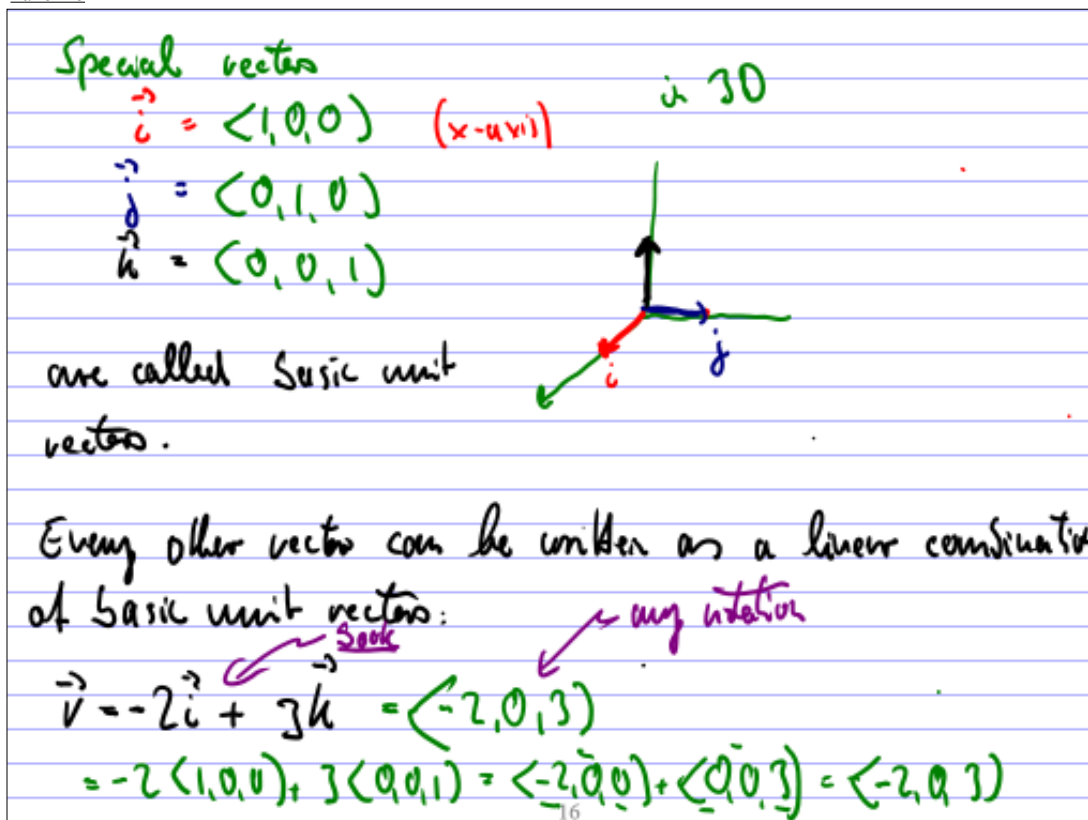 Special vectors
in 3D
i⃗ = <1,0,0> (x-axis)
j⃗ = <0,1,0>
k⃗ = <0,0,1>
i
j
are called basic unit
vectors.
Every other vector can be written as a linear combination
of basic unit vectors:
book
my notation
v⃗ = -2i⃗ + 3k⃗ = <-2,0,3>
= -2<1,0,0> + 3<0,0,1> = <-2,0,0> + <0,0,3> = <-2,0,3>
16